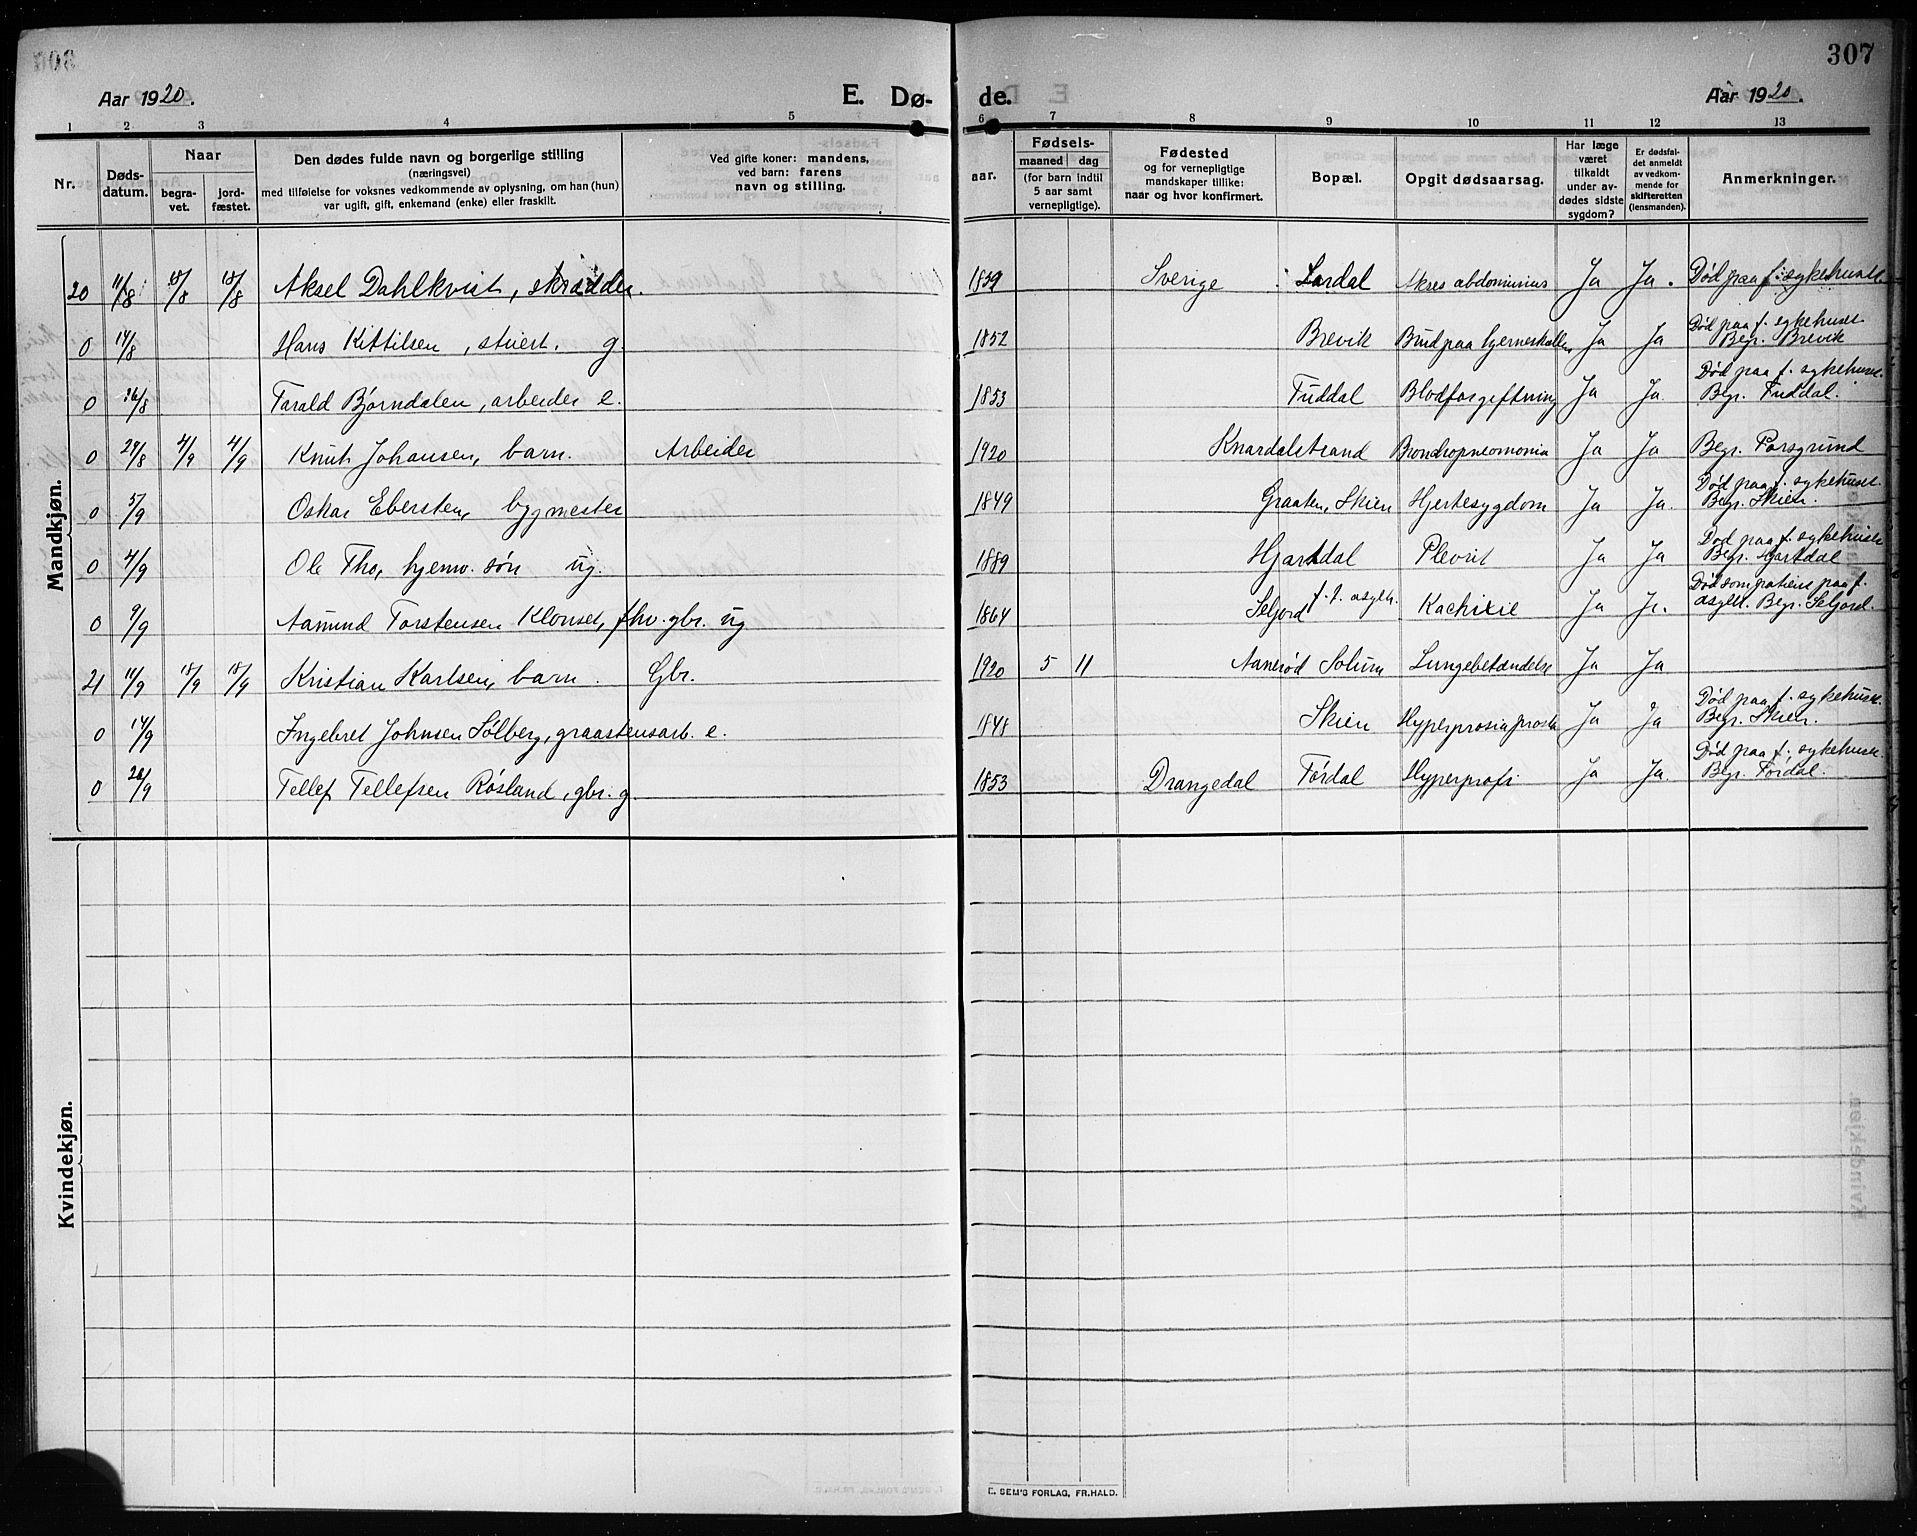 307
Aar 1920.
E. Dø-
de.
Aar 1920.
1 2 3 4 5 6 7 8 9 10 11 12 13
Nr.
Døds-
datum.
Naar
begra-
vet.
jord-
fæstet.
Den dødes fulde navn og borgerlige stilling
(næringsvei)
med tilføielse for voksnes vedkommende av oplysning, om han (hun)
var ugift, gift, enkemand (enke) eller fraskilt.
Ved gifte koner: mandens,
ved barn: farens
navn og stilling.
Fødsels-
aar.
maaned
dag
(for barn indtil
5 aar samt
vernepligtige).
Fødested
og for vernepligtige
mandskaper tillike:
naar og hvor konfirmert.
Bopæl.
Opgit dødsaarsag.
Har læge
været
tilkaldt
under av-
dødes sidste
sygdom?
Er dødsfal-
det anmeldt
av vedkom-
mende for
skifteretten
(lensmanden).
Anmerkninger.
Mandkjøn.
20 11/8 18/8 18/8 Aksel Dahlkvist, skrædder. 1859 Sverige Lardal abdominius Ja Ja. Død paa f. sykehuset.
0 14/8 Hans Kittilsen, stuert. g. 1852 Brevik Brud paa hjerneskallen Ja Ja Død paa f. sykehuset.
Begr. Brevik
0 26/8 Tarald Bjørndalen, arbeider e. 1853 Tuddal Blodforgiftning Ja Ja. Død paa f. sykehuset.
Begr. Tuddal.
0 29/8 4/9 4/9 Knut Johansen, barn. Arbeider 1920 Knardalstrand Bronchopneomonia Ja Ja Begr. Porsgrund
0 5/9 Oskar Ebersten, bygmester 1849 Graaten, Skien Hjertesygdom Ja Ja. Død paa f. sykehuset.
Begr. Skien.
0 4/9 Ole Tho, hjemv. søn ug. 1889 Hjartdal Plevrit Ja Ja Død paa f. sykehuset
Begr. Hjartdal
0 9/9 Aamund Torstensen Klonset, fhv. gbr. ug 1864 Seljord f. t. asylet. Kachixie Ja Ja. Død som patient paa f.
asylet. Begr. Seljord.
21 11/9 18/9 18/9 Kristian Karlsen, barn. Gbr. 1920 5 11 Aanerød Solum Lungebetændelse Ja Ja
0 17/9 Ingebret Johnsen Sølberg, graastensarb. e. 1848 Skien Ja Ja Død paa f. sykehuset.
Begr. Skien.
0 28/9 Tellef Tellefsen Røsland, gbr. g. 1853 Drangedal Tørdal Ja Ja. Død paa f. sykehuset.
Begr. Tørdal.
Kvindekjøn.
E. SEM'S FORLAG, FR.HALD.